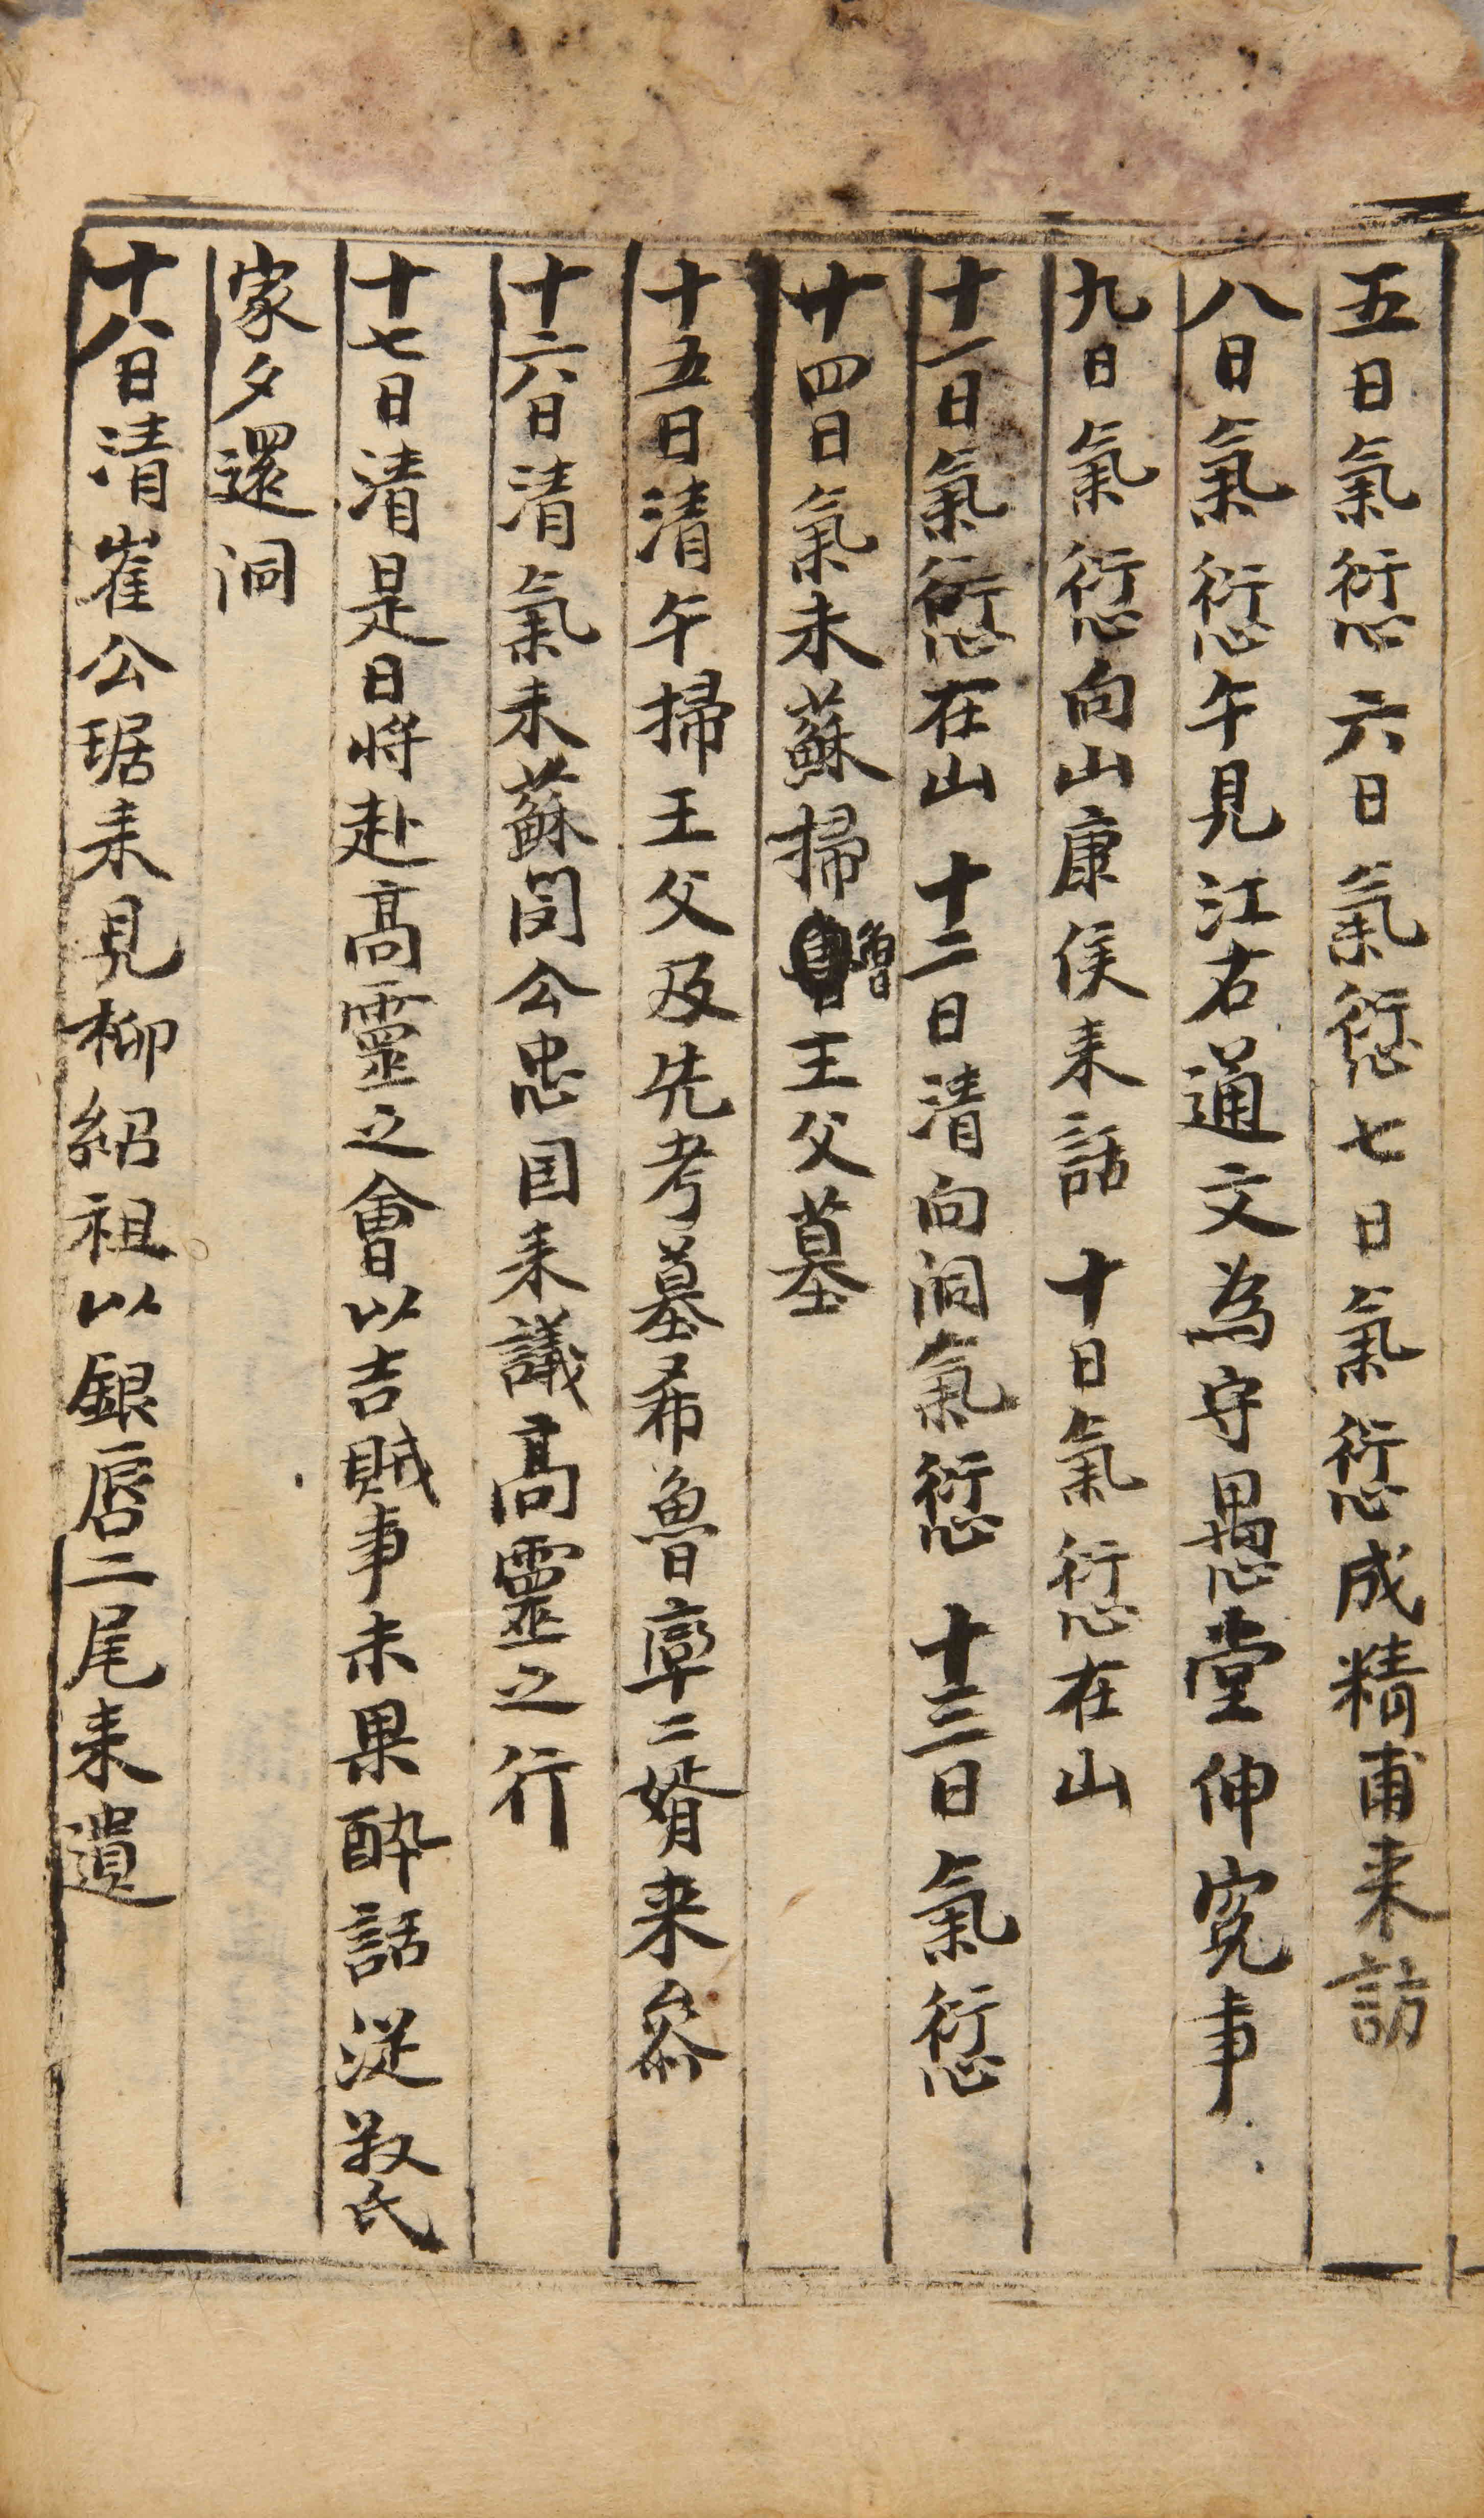 五日氣愆 六日氣愆 七日氣愆成精甫来訪
八日氣愆午見江右通文為守愚堂伸寃事
九日氣愆向山康侯来話 十日氣愆在山
十一日氣愆在山 十二日清向洞氣愆 十三日氣愆
十四日氣未蘇掃曾王父墓
十五日清午掃王父及先考墓希魯㝆二婿来叅
十六日清氣未蘇闵公忠国来議高靈之行
十七日清是日将赴高靈之會以吉賊事未果醉話従叔氏
家夕還洞
十八日清崔公琚来見柳紹祖以銀唇二尾来遺